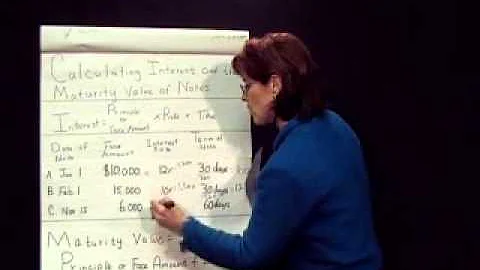 Calculating Interest and
Maturity Value of Notes
Interest = Principle or Face Amount x Rate x Time
Date of Note Face Amount Interest Rate Term of Note
A Jan 1 $10,000 12% 30 days
B. Feb 1 15,000 10% 30 days
C. Nov 15 6,000 60 days
Maturity Value =
Principle or Face Amount +